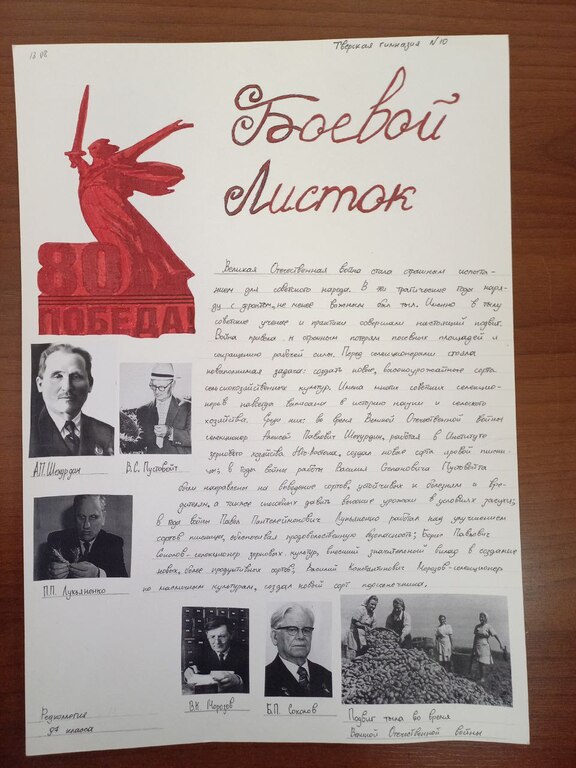 13.08
Тверская гимназия №10
Боевой
Листок
80
ПОБЕДА!
Великая Отечественная война стала страшным испыта-
нием для советского народа. В эти трагические годы наря-
ду с фронтом, не менее важным был тыл. Именно в тылу
советские ученые и практики совершали настоящий подвиг.
Война привела к огромным потерям посевных площадей и
сокращению рабочей силы. Перед селекционерами стояла
невыполнимая задача: создать новые, высокоурожайные сорта
сельскохозяйственных культур. Имена многих советских селекцио-
неров навсегда вписаны в историю науки и сельского
хозяйства. Среди них: во время Великой Отечественной войны
селекционер Алексей Павлович Шехурдин, работая в Институте
зернового хозяйства Юго-Востока, создал новые сорта яровой пшени-
цы; в годы войны работы Василия Степановича Пустовойта
были направлены на выведение сортов, устойчивых к болезням и вре-
дителям, а также способных давать высокие урожаи в условиях засухи;
в годы войны Павел Пантелеймонович Лукьяненко работал над улучшением
сортов пшеницы, обеспечивая продовольственную безопасность; Борис Павлович
Соколов-селекционер зерновых культур, внесший значительный вклад в создание
новых, более продуктивных сортов; Василий Константинович Морозов-селекционер
по масличным культурам, создал новый сорт подсолнечника.
А.П. Шехурдин
В.С. Пустовойт
П.П. Лукьяненко
В.К. Морозов
Б.П. Соколов
Подвиг тыла во время
Великой Отечественной войны
Редколлегия
класса